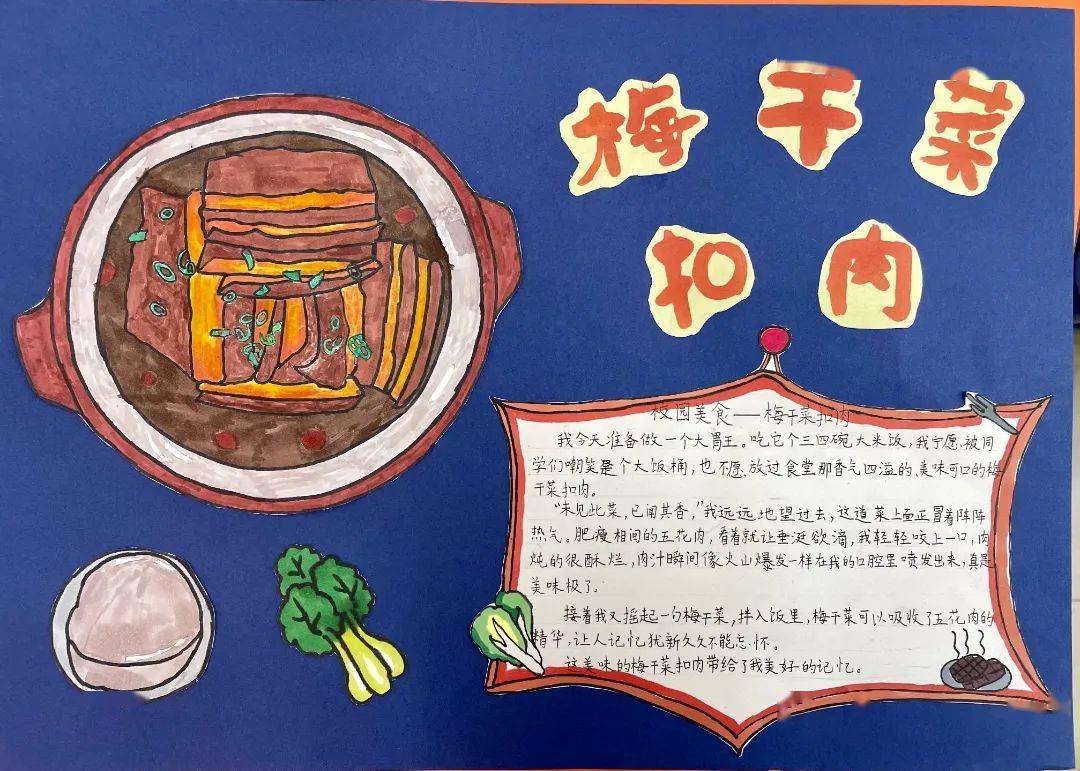 梅干菜
扣肉
校园美食——梅干菜扣肉
我今天准备做一个大胃王。吃它个三四碗大米饭，我宁愿被同
学们嘲笑是个大饭桶，也不愿放过食堂那香气四溢的、美味可口的梅
干菜扣肉。
“未见此菜，已闻其香，”我远远地望过去，这道菜上面正冒着阵阵
热气。肥瘦相间的五花肉，看着就让垂涎欲滴，我轻轻咬上一口，肉
炖的很酥烂，肉汁瞬间像火山爆发一样在我的口腔里喷发出来，真是
美味极了。
接着我又摇起一勺梅干菜，拌入饭里，梅干菜可以吸收了五花肉的
精华，让人记忆犹新久久不能忘怀。
这美味的梅干菜扣肉带给了我美好的记忆。